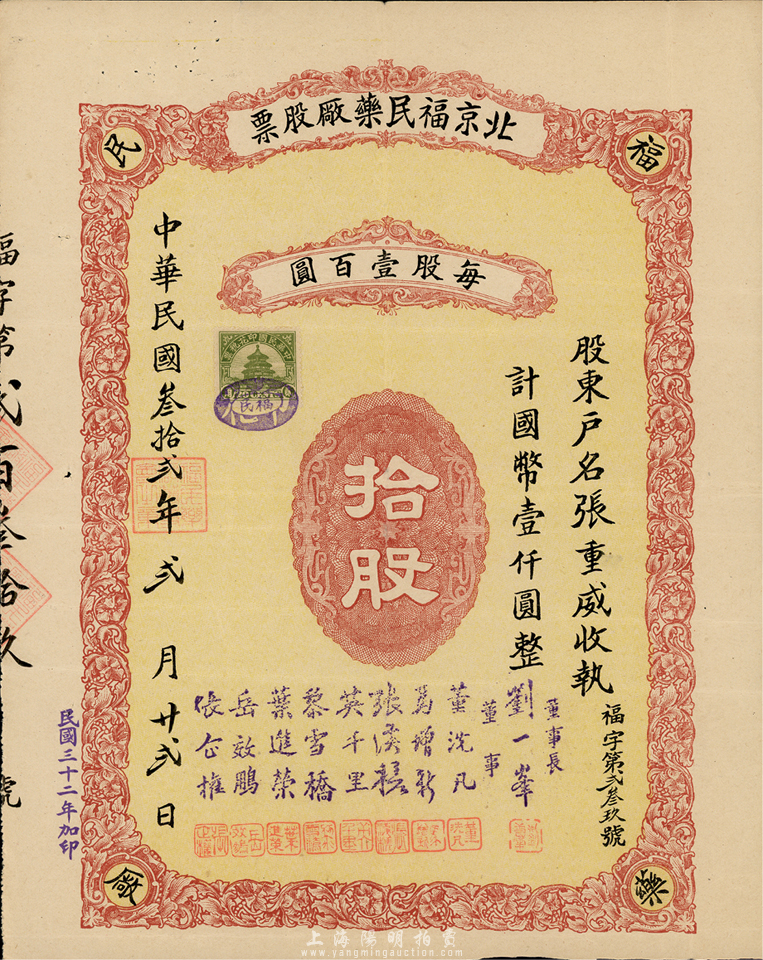 北京福民藥廠股票
福
民
藥
廠
每股壹百圓
股東戶名張重威收執
計國幣壹仟圓整
福字第弍叁玖號
拾股
董事長
劉一峯
董事
董洗凡
英千里
黎雪橋
葉進榮
岳效鵬
中華民國叁拾弍年弍月廿弍日
福民
福字第弍百叁拾玖號
民國三十二年加印
上海陽明拍賣
www.yangmingauction.com